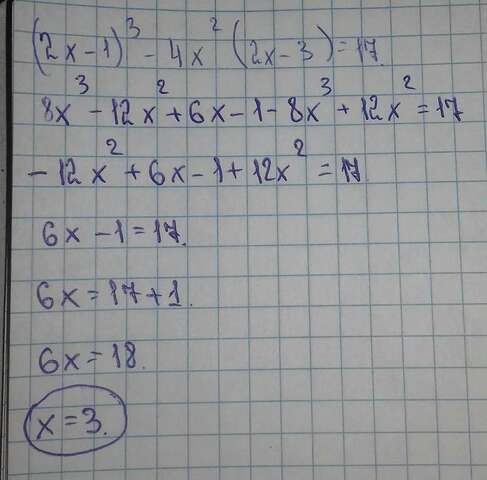 (2x-1)³ - 4x² (2x-3) = 17.
8x³ - 12x² + 6x - 1 - 8x³ + 12x² = 17
- 12x² + 6x - 1 + 12x² = 17.
6x - 1 = 17.
6x = 17 + 1.
6x = 18.
x = 3.